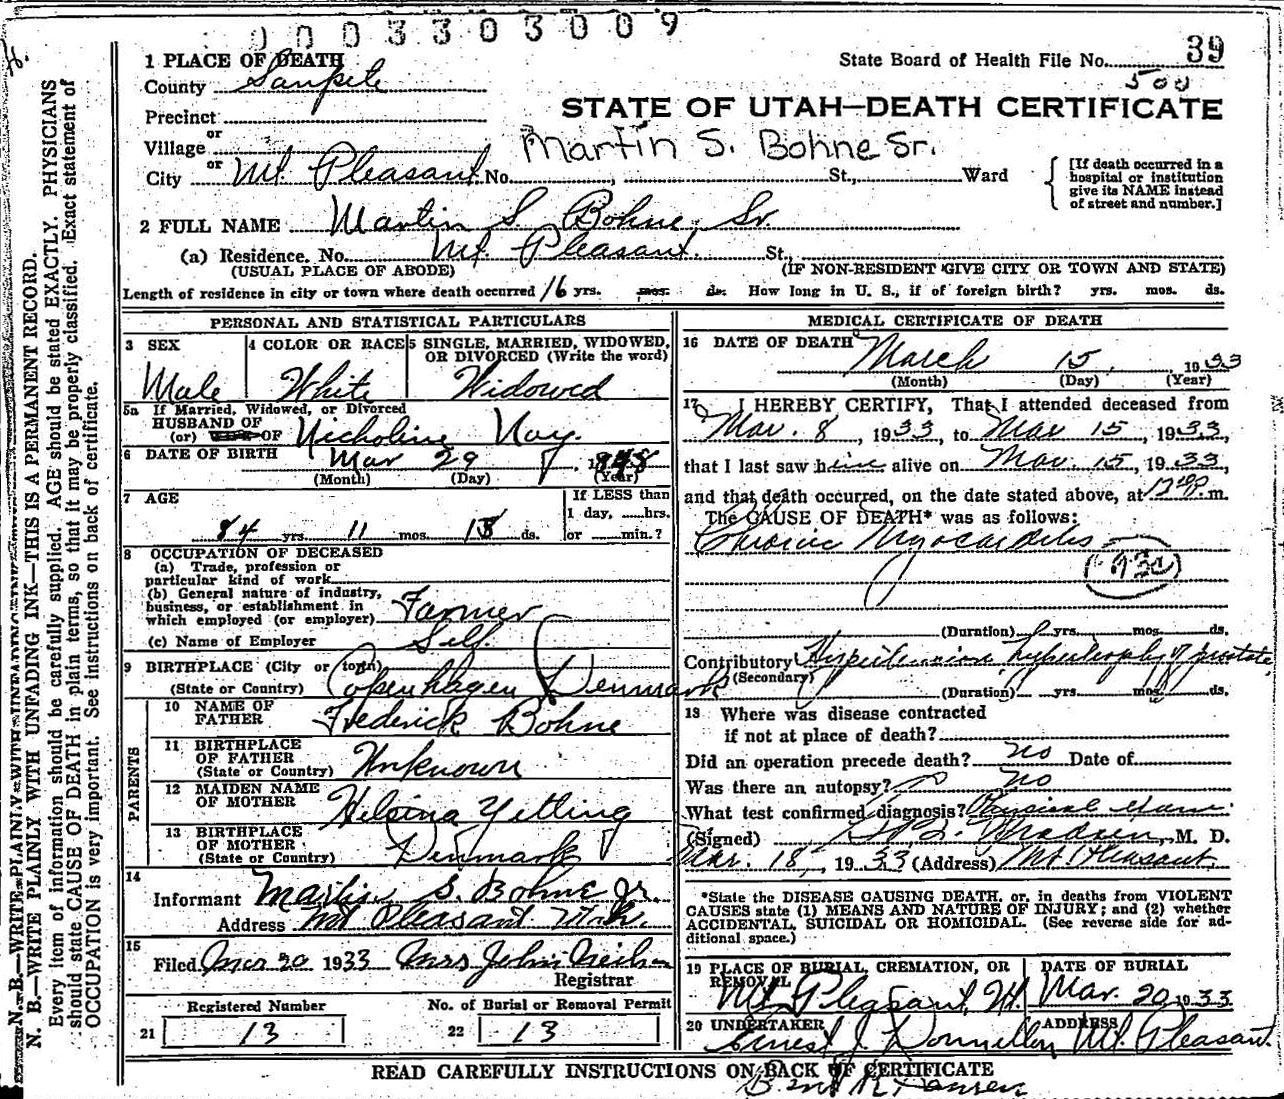 0003303009
1 PLACE OF DEATH
State Board of Health File No. 39
County Sanpete
500
STATE OF UTAH—DEATH CERTIFICATE
Precinct
or
Village
Martin S. Bohne Sr.
or
City Mt Pleasant No. , St., Ward
[If death occurred in a hospital or institution give its NAME instead of street and number.]
2 FULL NAME Martin S. Bohne, Sr.
(a) Residence. No. Mt. Pleasant. St.,
(USUAL PLACE OF ABODE) (IF NON-RESIDENT GIVE CITY OR TOWN AND STATE)
Length of residence in city or town where death occurred 16 yrs. mos. ds. How long in U. S., if of foreign birth? yrs. mos. ds.
PERSONAL AND STATISTICAL PARTICULARS
3 SEX
Male
4 COLOR OR RACE
White
5 SINGLE, MARRIED, WIDOWED, OR DIVORCED (Write the word)
Widowed
5a If Married, Widowed, or Divorced
HUSBAND OF
(or) OF Nicholine
6 DATE OF BIRTH Mar 29, 1848
(Month) (Day) (Year)
7 AGE
84 yrs. 11 mos. ds.
If LESS than
1 day, hrs.
or min.?
8 OCCUPATION OF DECEASED
(a) Trade, profession or
particular kind of work
(b) General nature of industry,
business, or establishment in
which employed (or employer) Farmer
(c) Name of Employer Self.
9 BIRTHPLACE (City or town)
(State or Country) Copenhagen Denmark
PARENTS
10 NAME OF
FATHER Frederick Bohne
11 BIRTHPLACE
OF FATHER
(State or Country) Unknown
12 MAIDEN NAME
OF MOTHER Yetting
13 BIRTHPLACE
OF MOTHER
(State or Country) Denmark
14
Informant Martin S. Bohne Jr.
Address Mt Pleasant Utah.
15
Filed Mar 20 1933 Mrs John
Registrar
Registered Number
21 13
No. of Burial or Removal Permit
22 13
MEDICAL CERTIFICATE OF DEATH
16 DATE OF DEATH March 15, 1933
(Month) (Day) (Year)
17 I HEREBY CERTIFY, That I attended deceased from
Mar. 8, 1933, to Mar 15, 1933,
that I last saw him alive on Mar. 15, 1933,
and that death occurred, on the date stated above, at m.
The CAUSE OF DEATH* was as follows:
Chronic Myocarditis
(Duration) yrs. mos. ds.
Contributory Hypertension, hypertrophy of prostate
(Secondary)
(Duration) yrs. mos. ds.
18 Where was disease contracted
if not at place of death?
Did an operation precede death? no Date of
Was there an autopsy? no
What test confirmed diagnosis? Physical exam.
(Signed) Madsen, M. D.
Mar. 18, 1933 (Address) Mt Pleasant
*State the DISEASE CAUSING DEATH, or, in deaths from VIOLENT
CAUSES state (1) MEANS AND NATURE OF INJURY; and (2) whether
ACCIDENTAL, SUICIDAL OR HOMICIDAL. (See reverse side for ad-
ditional space.)
19 PLACE OF BURIAL, CREMATION, OR
REMOVAL
Mt. Pleasant, Ut.
DATE OF BURIAL
Mar. 20 1933
20 UNDERTAKER
Ernest J.
ADDRESS
Mt. Pleasant.
READ CAREFULLY INSTRUCTIONS ON BACK OF CERTIFICATE
N. B.—WRITE PLAINLY WITH UNFADING INK—THIS IS A PERMANENT RECORD.
Every item of information should be carefully supplied. AGE should be stated EXACTLY. PHYSICIANS
should state CAUSE OF DEATH in plain terms, so that it may be properly classified. Exact statement of
OCCUPATION is very important. See instructions on back of certificate.